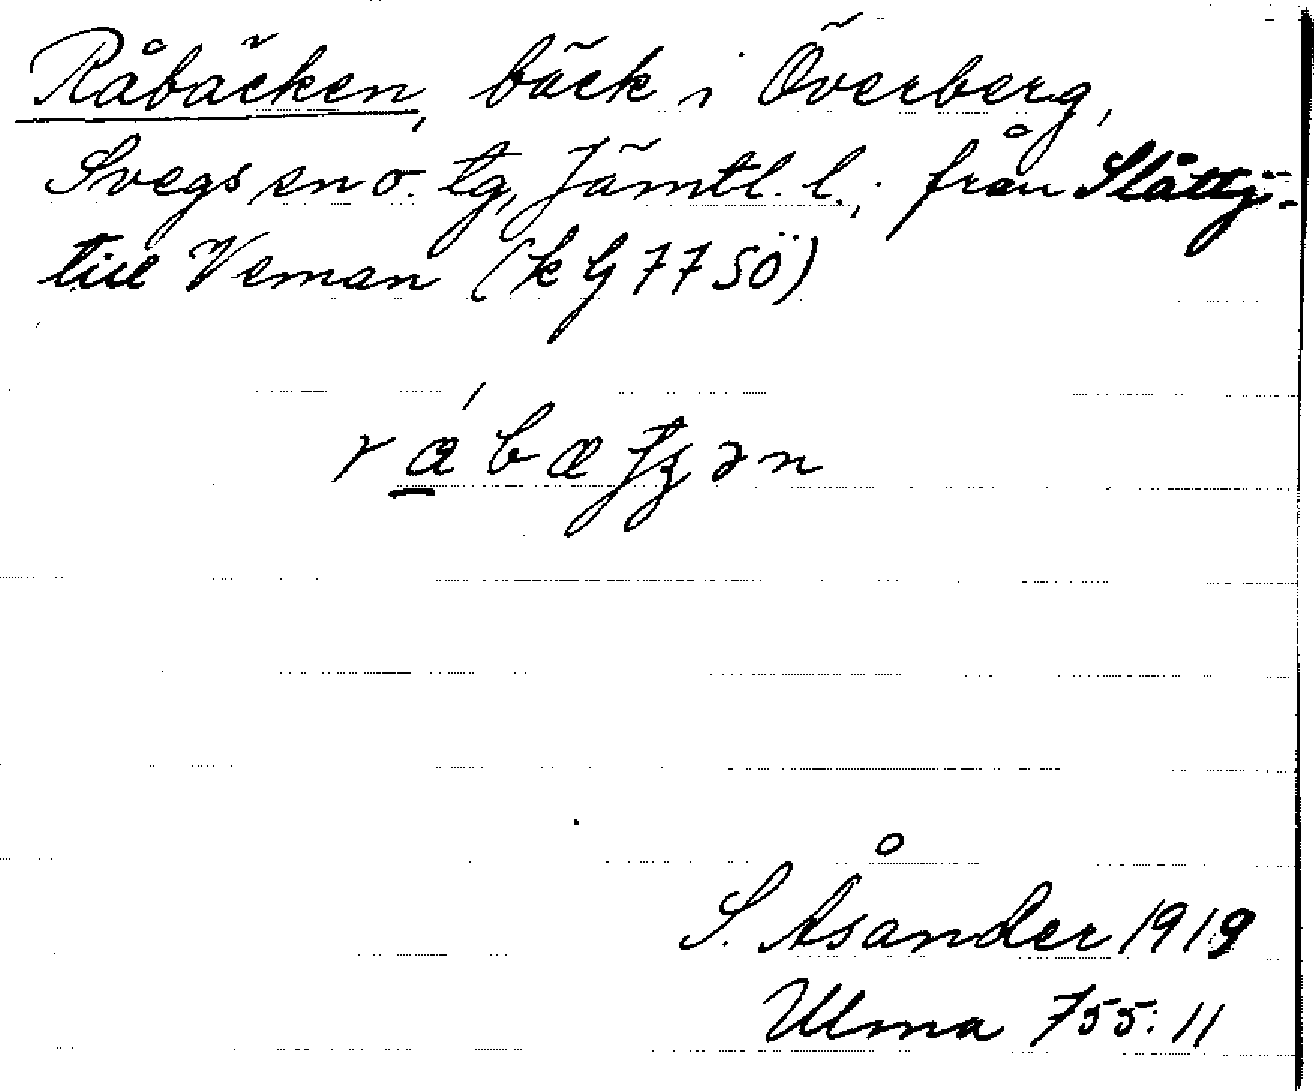 Råbäcken, bäck i Överberg,
Svegs sn o. tg, Jämtl. l.; från Slåttj-
till Veman (k G 77 SÖ)
S. Åsander 1919
Ulma 755:11